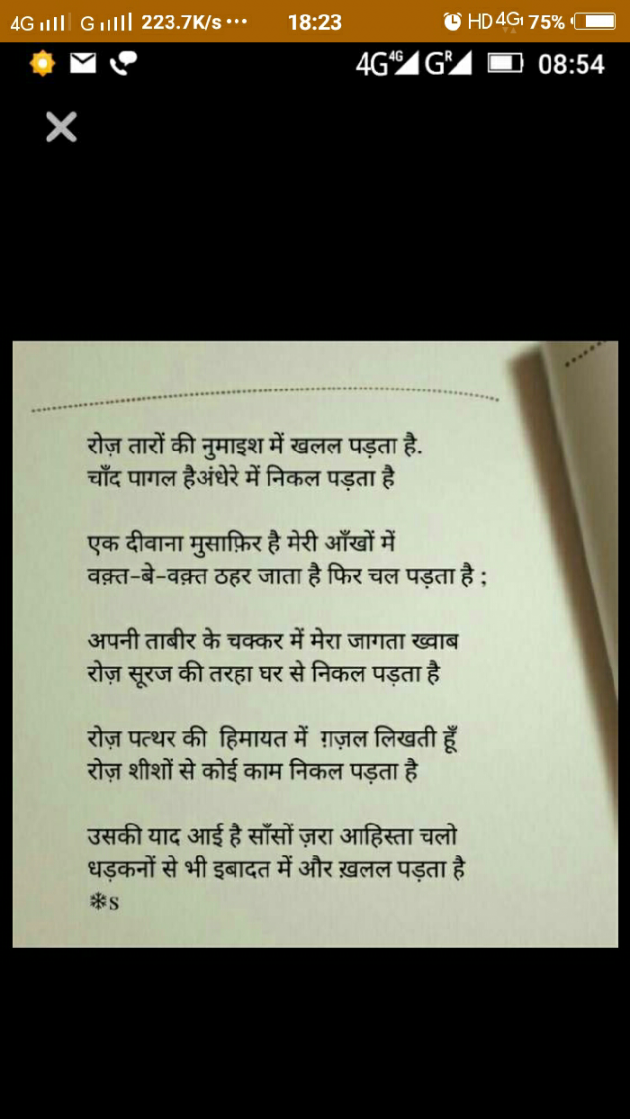 4G G 223.7K/s ... 18:23 HD 4G 75%
4G 4G G R 08:54
रोज़ तारों की नुमाइश में खलल पड़ता है.
चाँद पागल हैअंधेरे में निकल पड़ता है
एक दीवाना मुसाफ़िर है मेरी आँखों में
वक़्त-बे-वक़्त ठहर जाता है फिर चल पड़ता है ;
अपनी ताबीर के चक्कर में मेरा जागता ख्वाब
रोज़ सूरज की तरहा घर से निकल पड़ता है
रोज़ पत्थर की हिमायत में ग़ज़ल लिखती हूँ
रोज़ शीशों से कोई काम निकल पड़ता है
उसकी याद आई है साँसों ज़रा आहिस्ता चलो
धड़कनों से भी इबादत में और ख़लल पड़ता है
❄s